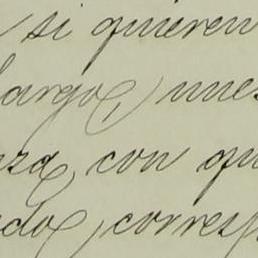 si quieren
largo, unes
esa, con qu
do, corresp